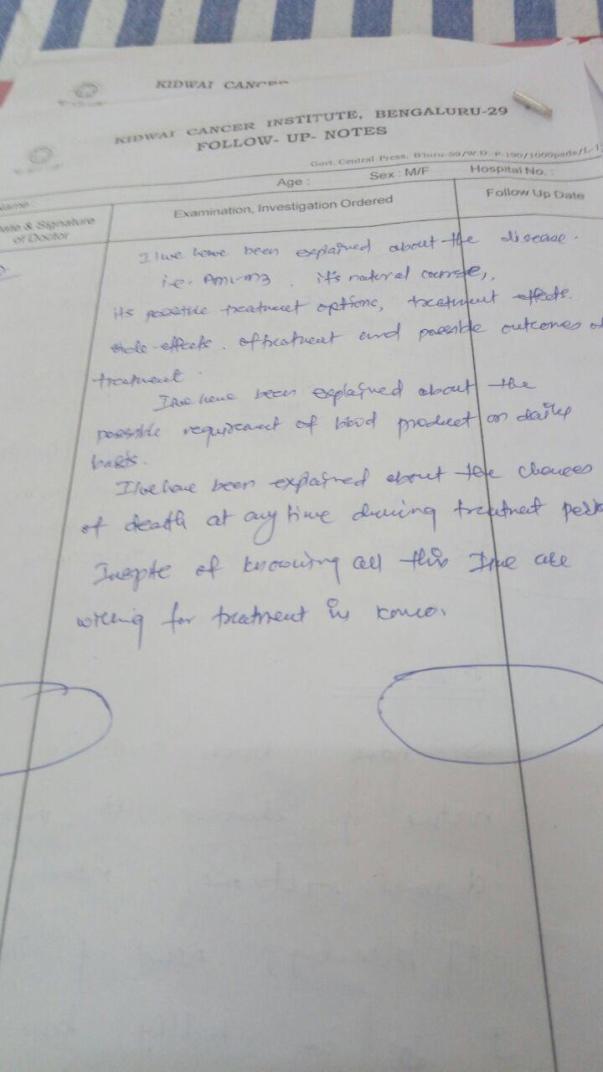 KIDWAI CANCE
KIDWAI CANCER INSTITUTE, BENGALURU-29
FOLLOW- UP- NOTES
Govt. Central Press, B'luru-59/W.D.-P-190/1000pads/
Name
Age :
Sex : M/F
Hospital No. :
Date & Signature
of Doctor
Examination, Investigation Ordered
Follow Up Date
I/we have been explained about the disease.
i.e. AML-M3. its natural course,
its possible treatment options, treatment effects.
side-effects. of treatment and possible outcomes of
treatment.
I/we have been explained about the
possible requirement of blood product on daily
basis.
I/we have been explained about the chances
of death at any time during treatment
Inspite of knowing all this I/we are
willing for treatment in